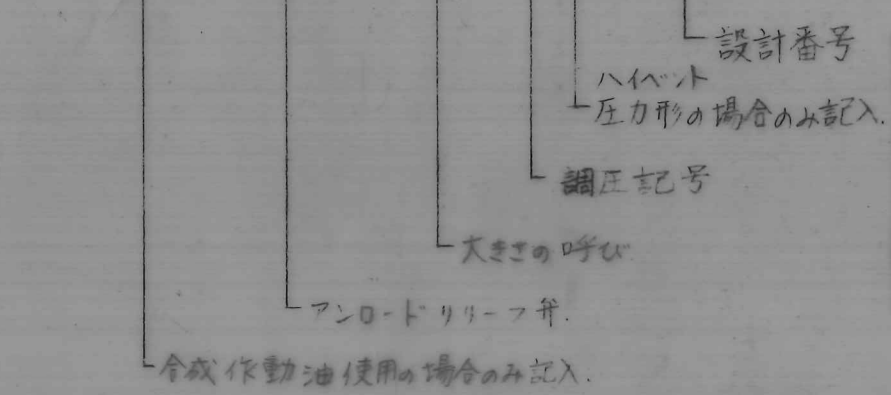 設計番号
ハイベント
圧力形の場合のみ記入.
調圧記号
大きさの呼び
アンロードリリーフ弁.
合成作動油使用の場合のみ記入.